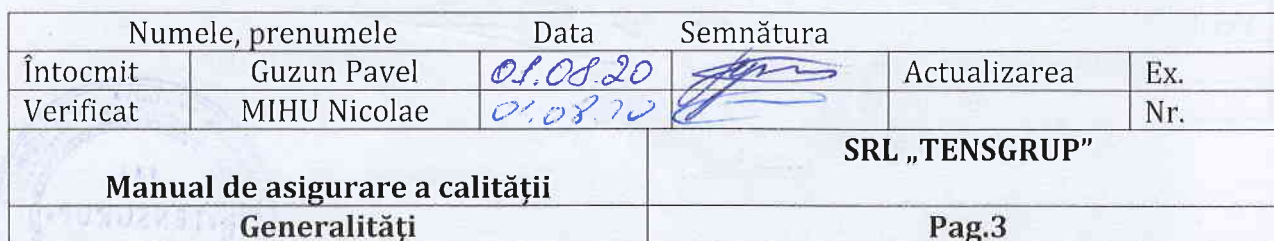 Numele, prenumele Data Semnătura
Întocmit Guzun Pavel 01.08.20 Actualizarea Ex.
Verificat MIHU Nicolae 01.08.20 Nr.
SRL „TENSGRUP”
Manual de asigurare a calității
Generalități Pag.3